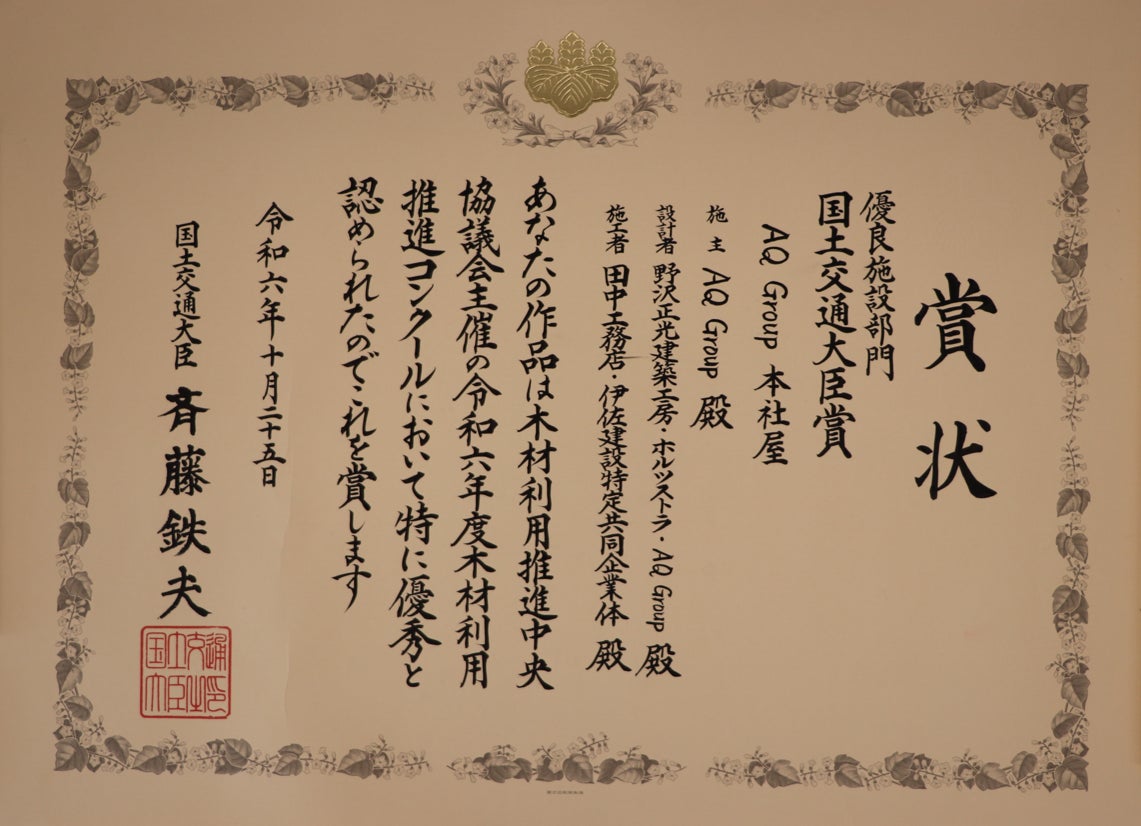 賞状
優良施設部門
国土交通大臣賞
AQ Group 本社屋
施主 AQ Group 殿
設計者 野沢正光建築工房・ホルツストラ・AQ Group 殿
施工者 田中工務店・伊佐建設特定共同企業体 殿
あなたの作品は木材利用推進中央
協議会主催の令和六年度木材利用
推進コンクールにおいて特に優秀と
認められたのでこれを賞します
令和六年十月二十五日
国土交通大臣 斉藤鉄夫
国土交通大臣之印